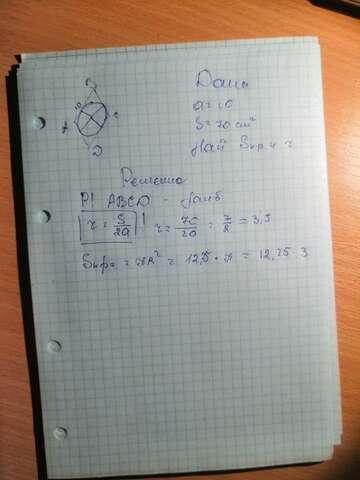 Дано
a = 10
S = 70 см²
Най Sкр и r
B
10
A
C
D
Решение
ABCD - ромб
r = S/2a ! r = 70/20 = 7/2 = 3,5
Sкр = πR² = 12,5 · π = 12,25 · 3